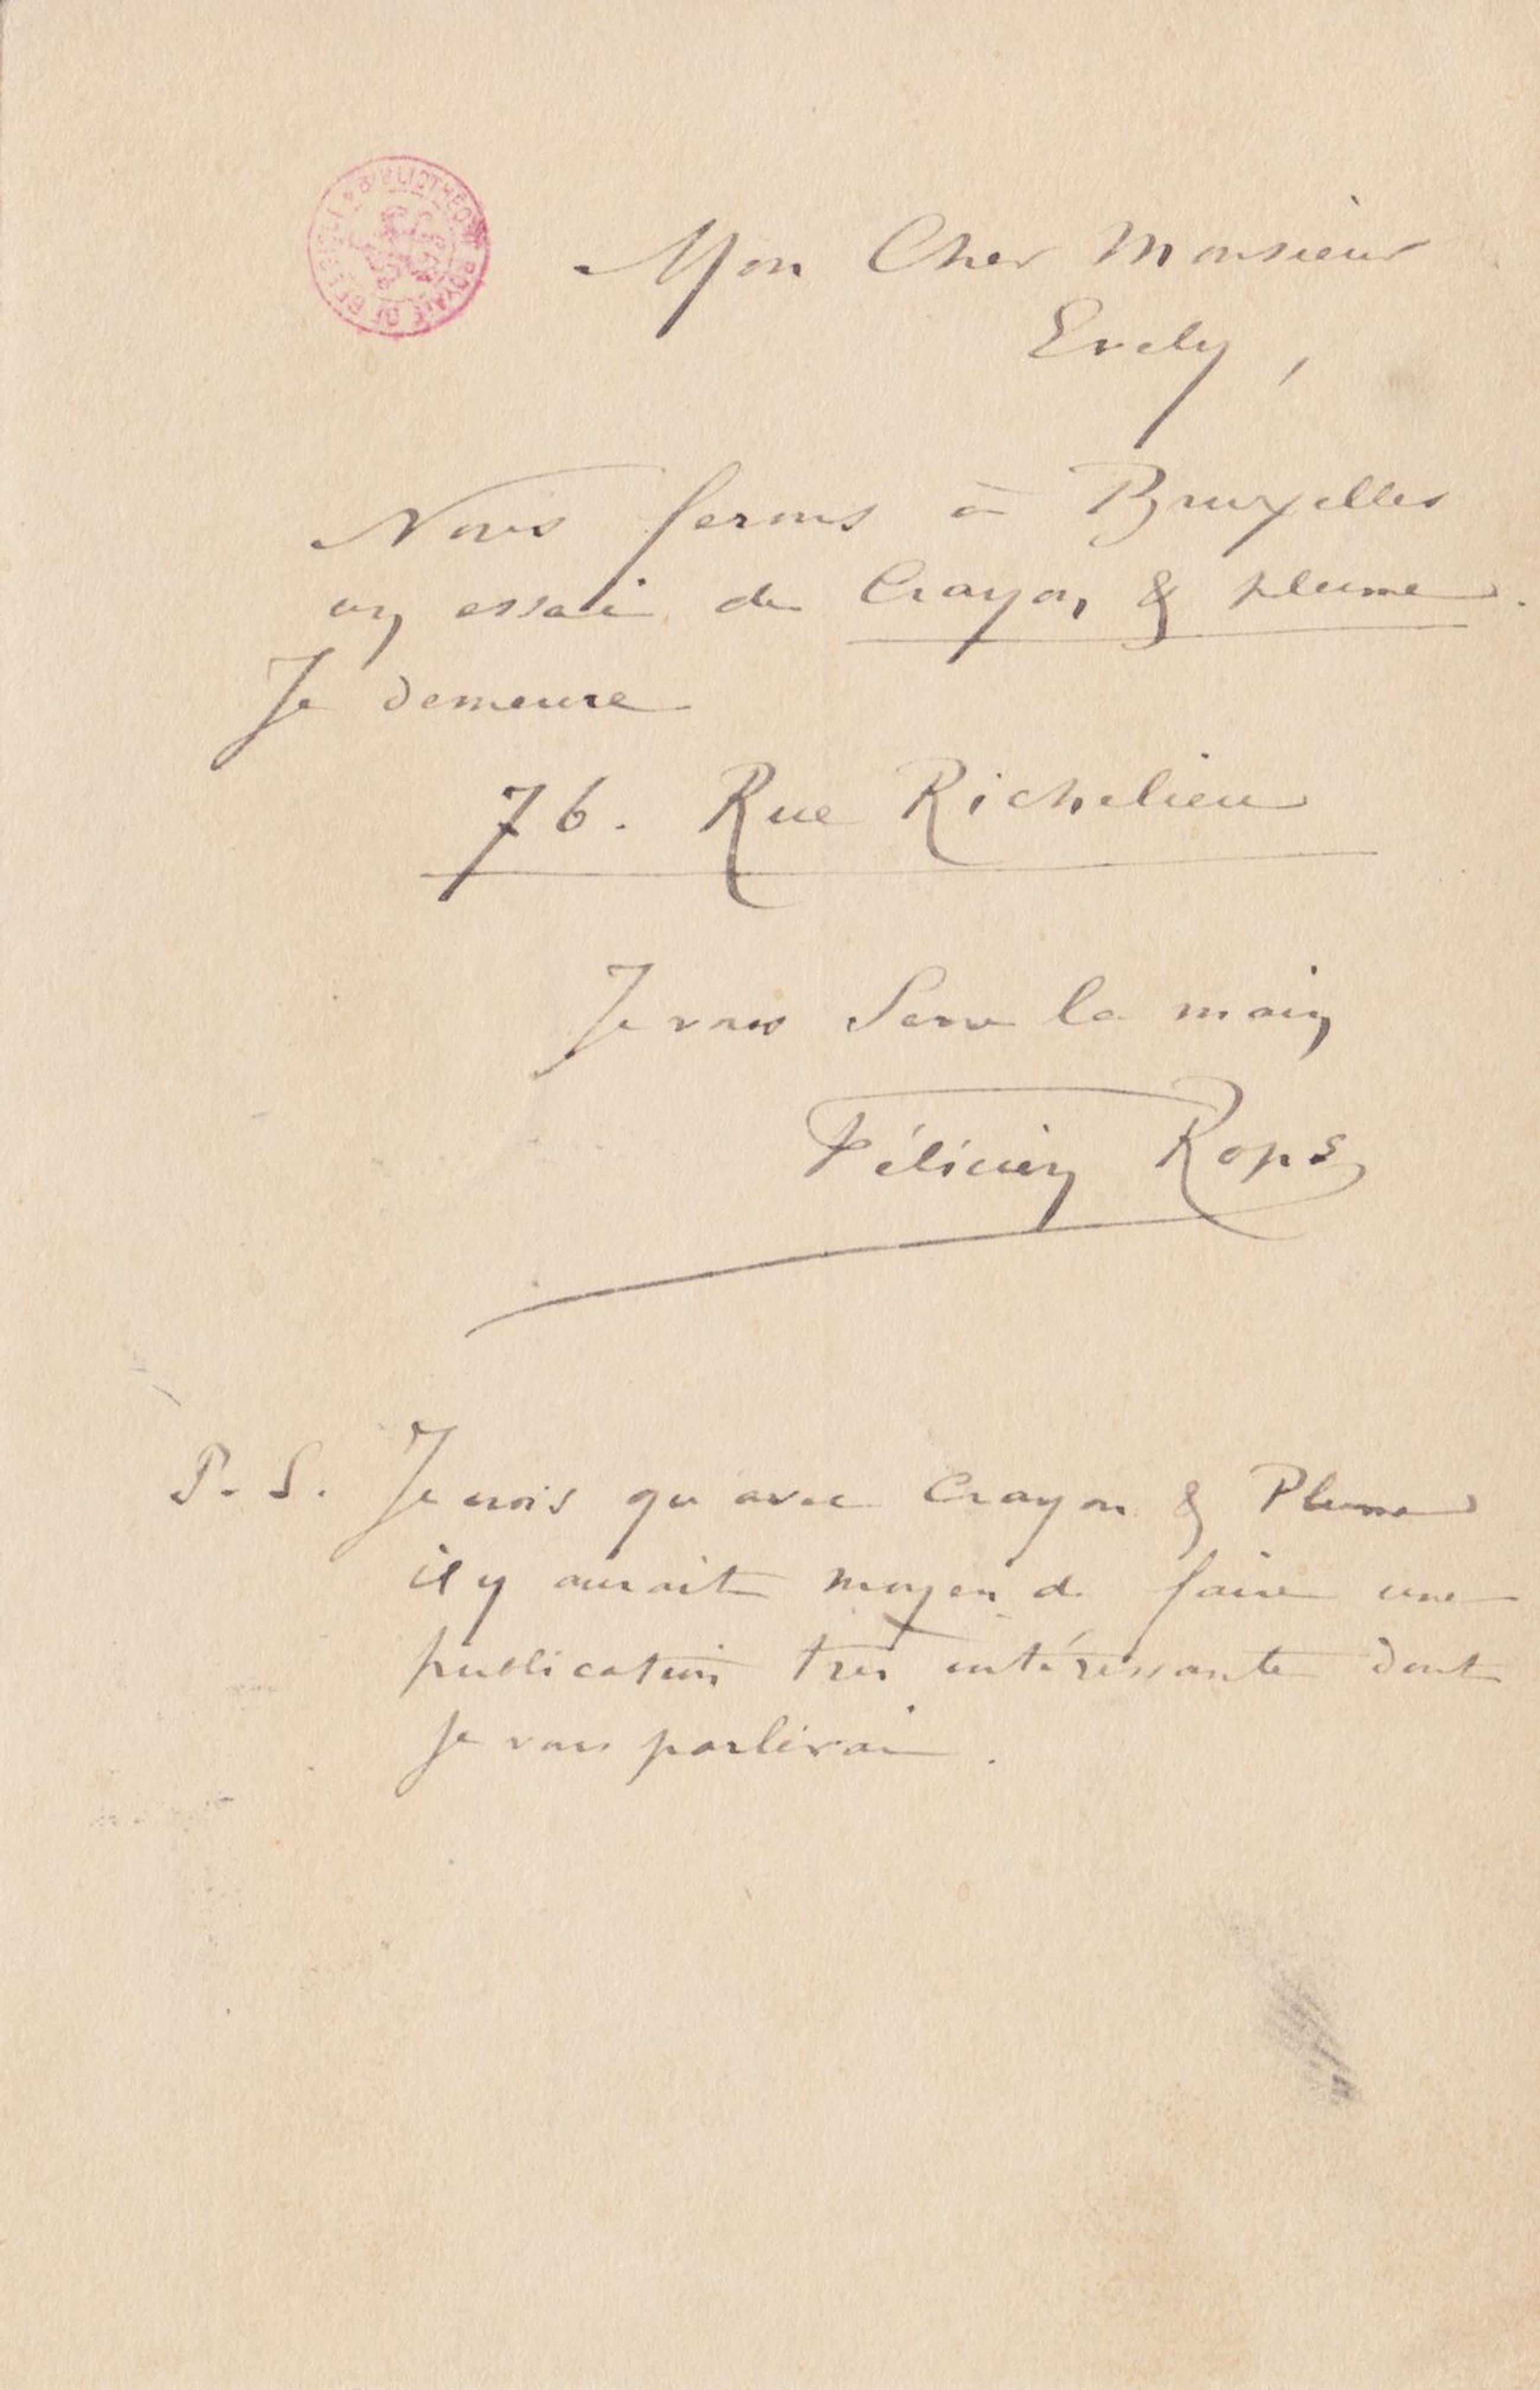 BIBLIOTHÈQUE ROYALE DE BELGIQUE
Mon Cher Monsieur
Evely,
Nous ferons à Bruxelles
un essai de Crayon & plume.
Je demeure
76. Rue Richelieu
Je vous serre la main
Félicien Rops
P. S. Je crois qu'avec Crayon & Plume
il y aurait moyen de faire une
publication très intéressante dont
Je vous parlerai.